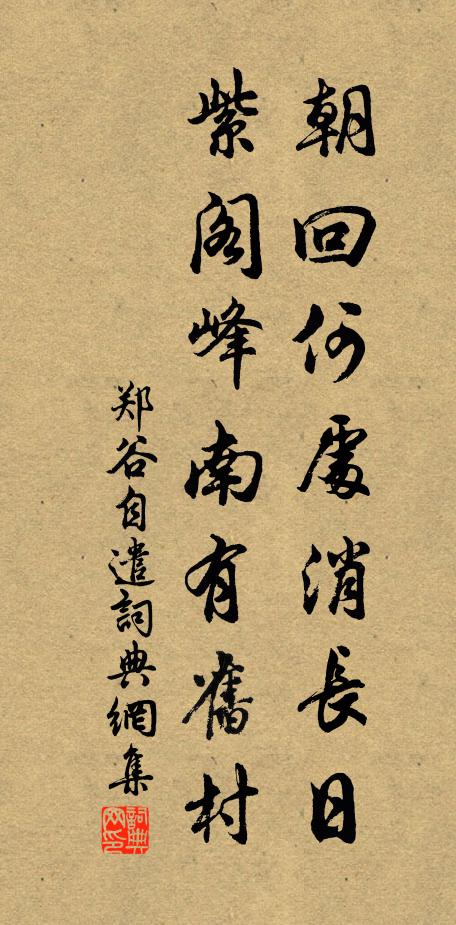 朝回何處消長日
紫阁峰南有舊村
郑谷自遣詞典網集
詞典网印